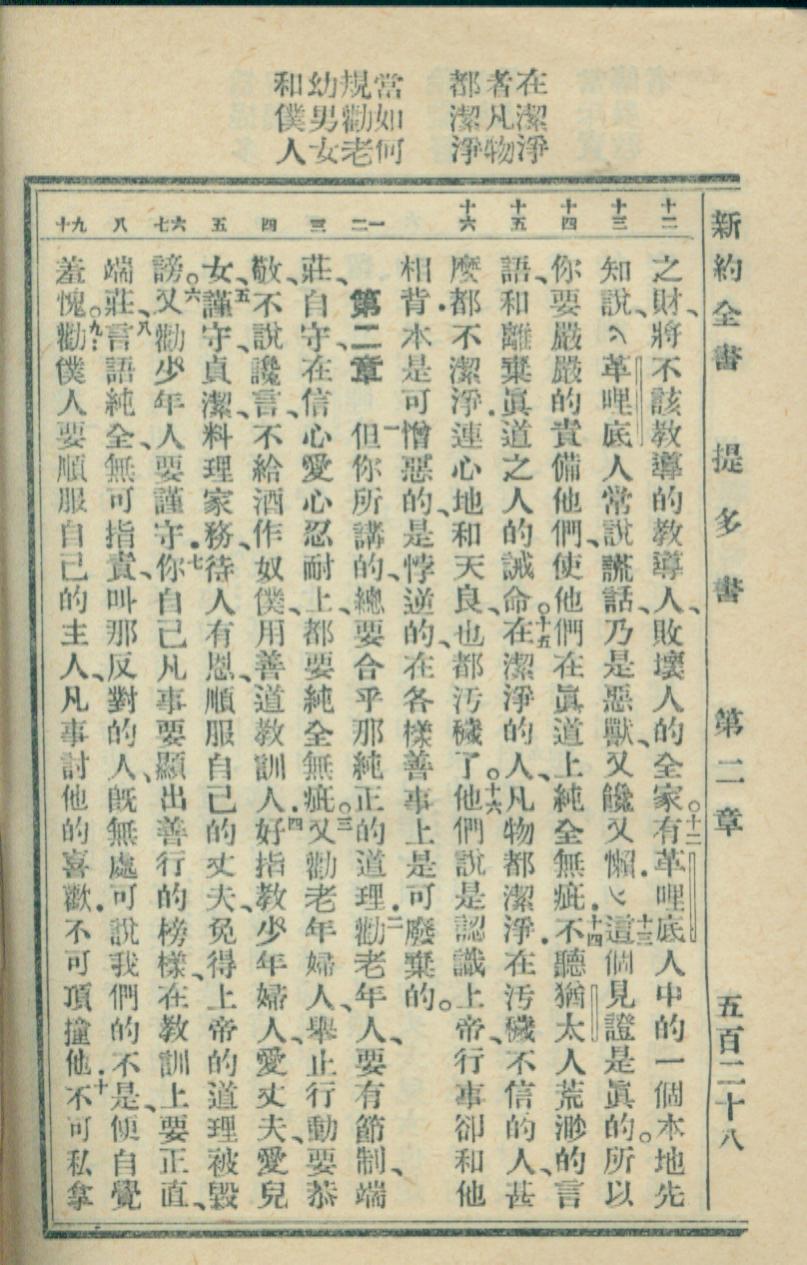 在潔淨
者凡物
都潔淨
當如何
規勸老
幼男女
和僕人
新約全書 提多書 第二章 五百二十八
十二
十三
十四
十五
十六
一二
三
四
五
六七
八
九十
之財、將不該教導的教導人、敗壞人的全家。十二有革哩底人中的一個本地先
知說、革哩底人常說謊話、乃是惡獸、又饞又懶．十三這個見證是眞的。所以
你要嚴嚴的責備他們、使他們在眞道上純全無疵．十四不聽猶太人荒渺的言
語、和離棄眞道之人的誡命。十五在潔淨的人、凡物都潔淨．在汚穢不信的人、甚
麽都不潔淨．連心地和天良、也都汚穢了。十六他們說是認識上帝、行事卻和他
相背．本是可憎惡的、是悖逆的、在各樣善事上是可廢棄的。
第二章 一但你所講的、總要合乎那純正的道理．二勸老年人、要有節制、端
莊、自守、在信心愛心忍耐上、都要純全無疵。三又勸老年婦人、舉止行動要恭
敬、不說讒言、不給酒作奴僕、用善道教訓人．四好指教少年婦人、愛丈夫、愛兒
女、五謹守、貞潔、料理家務、待人有恩、順服自己的丈夫、免得上帝的道理被毀
謗。六又勸少年人要謹守．七你自己凡事要顯出善行的榜樣、在教訓上要正直、
端莊、八言語純全、無可指責、叫那反對的人、旣無處可說我們的不是、便自覺
羞愧。九勸僕人要順服自己的主人、凡事討他的喜歡．不可頂撞他．十不可私拿